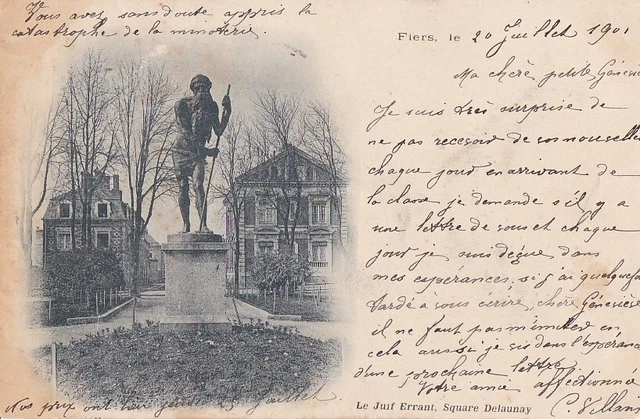 Vous avez sans doute appris la
catastrophe de la minoterie.
Flers, le 20 Juillet 1901
Ma chère petite Geneviè
Je suis très surprise de
ne pas recevoir de vos nouvelles
chaque jour en arrivant de
la classe je demande s'il y a
une lettre de vous et chaque
jour je suis déçue dans
mes espérances, si j'ai quelquefois
tardé à vous écrire, chère Geneviève
il ne faut pas m'imiter en
cela aussi je vis dans l'espérance
d'une prochaine lettre.
Votre amie affectionnée
Nos prix ont lieu Juillet
Le Juif Errant, Square Delaunay